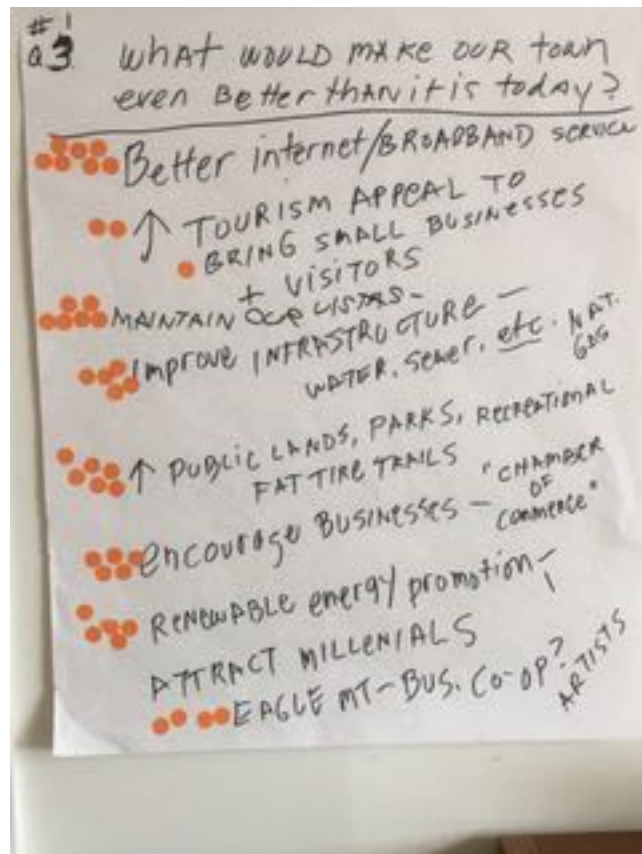 # 1
Q3 WHAT WOULD MAKE OUR town
even Better than it is today?
Better internet/BROADBAND SERVICE
↑ TOURISM APPEAL TO
BRING SMALL BUSINESSES
+ VISITORS
MAINTAIN OUR VISTAS-
Improve INFRASTRUCTURE -
WATER, Sewer, etc. NAT.
GAS
↑ PUBLIC LANDS, PARKS, RECREATIONAL
FAT TIRE TRAILS
encourage BUSINESSES - "CHAMBER
OF
Commerce"
RENEWABLE energy promotion-
ATTRACT MILLENIALS
EAGLE MT-BUS. CO-OP?
ARTISTS